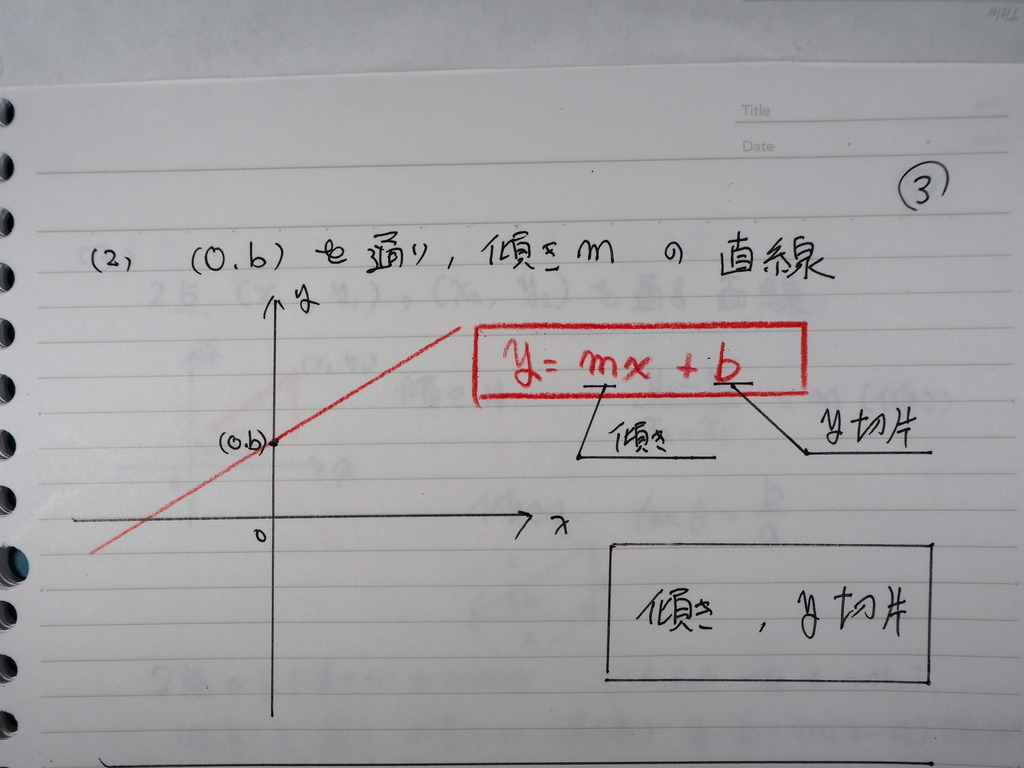 Title
Date
③
(2) (0.b) を通り, 傾き m の 直線
y
y = mx + b
(0.b)
傾き
y切片
0
x
傾き , y切片